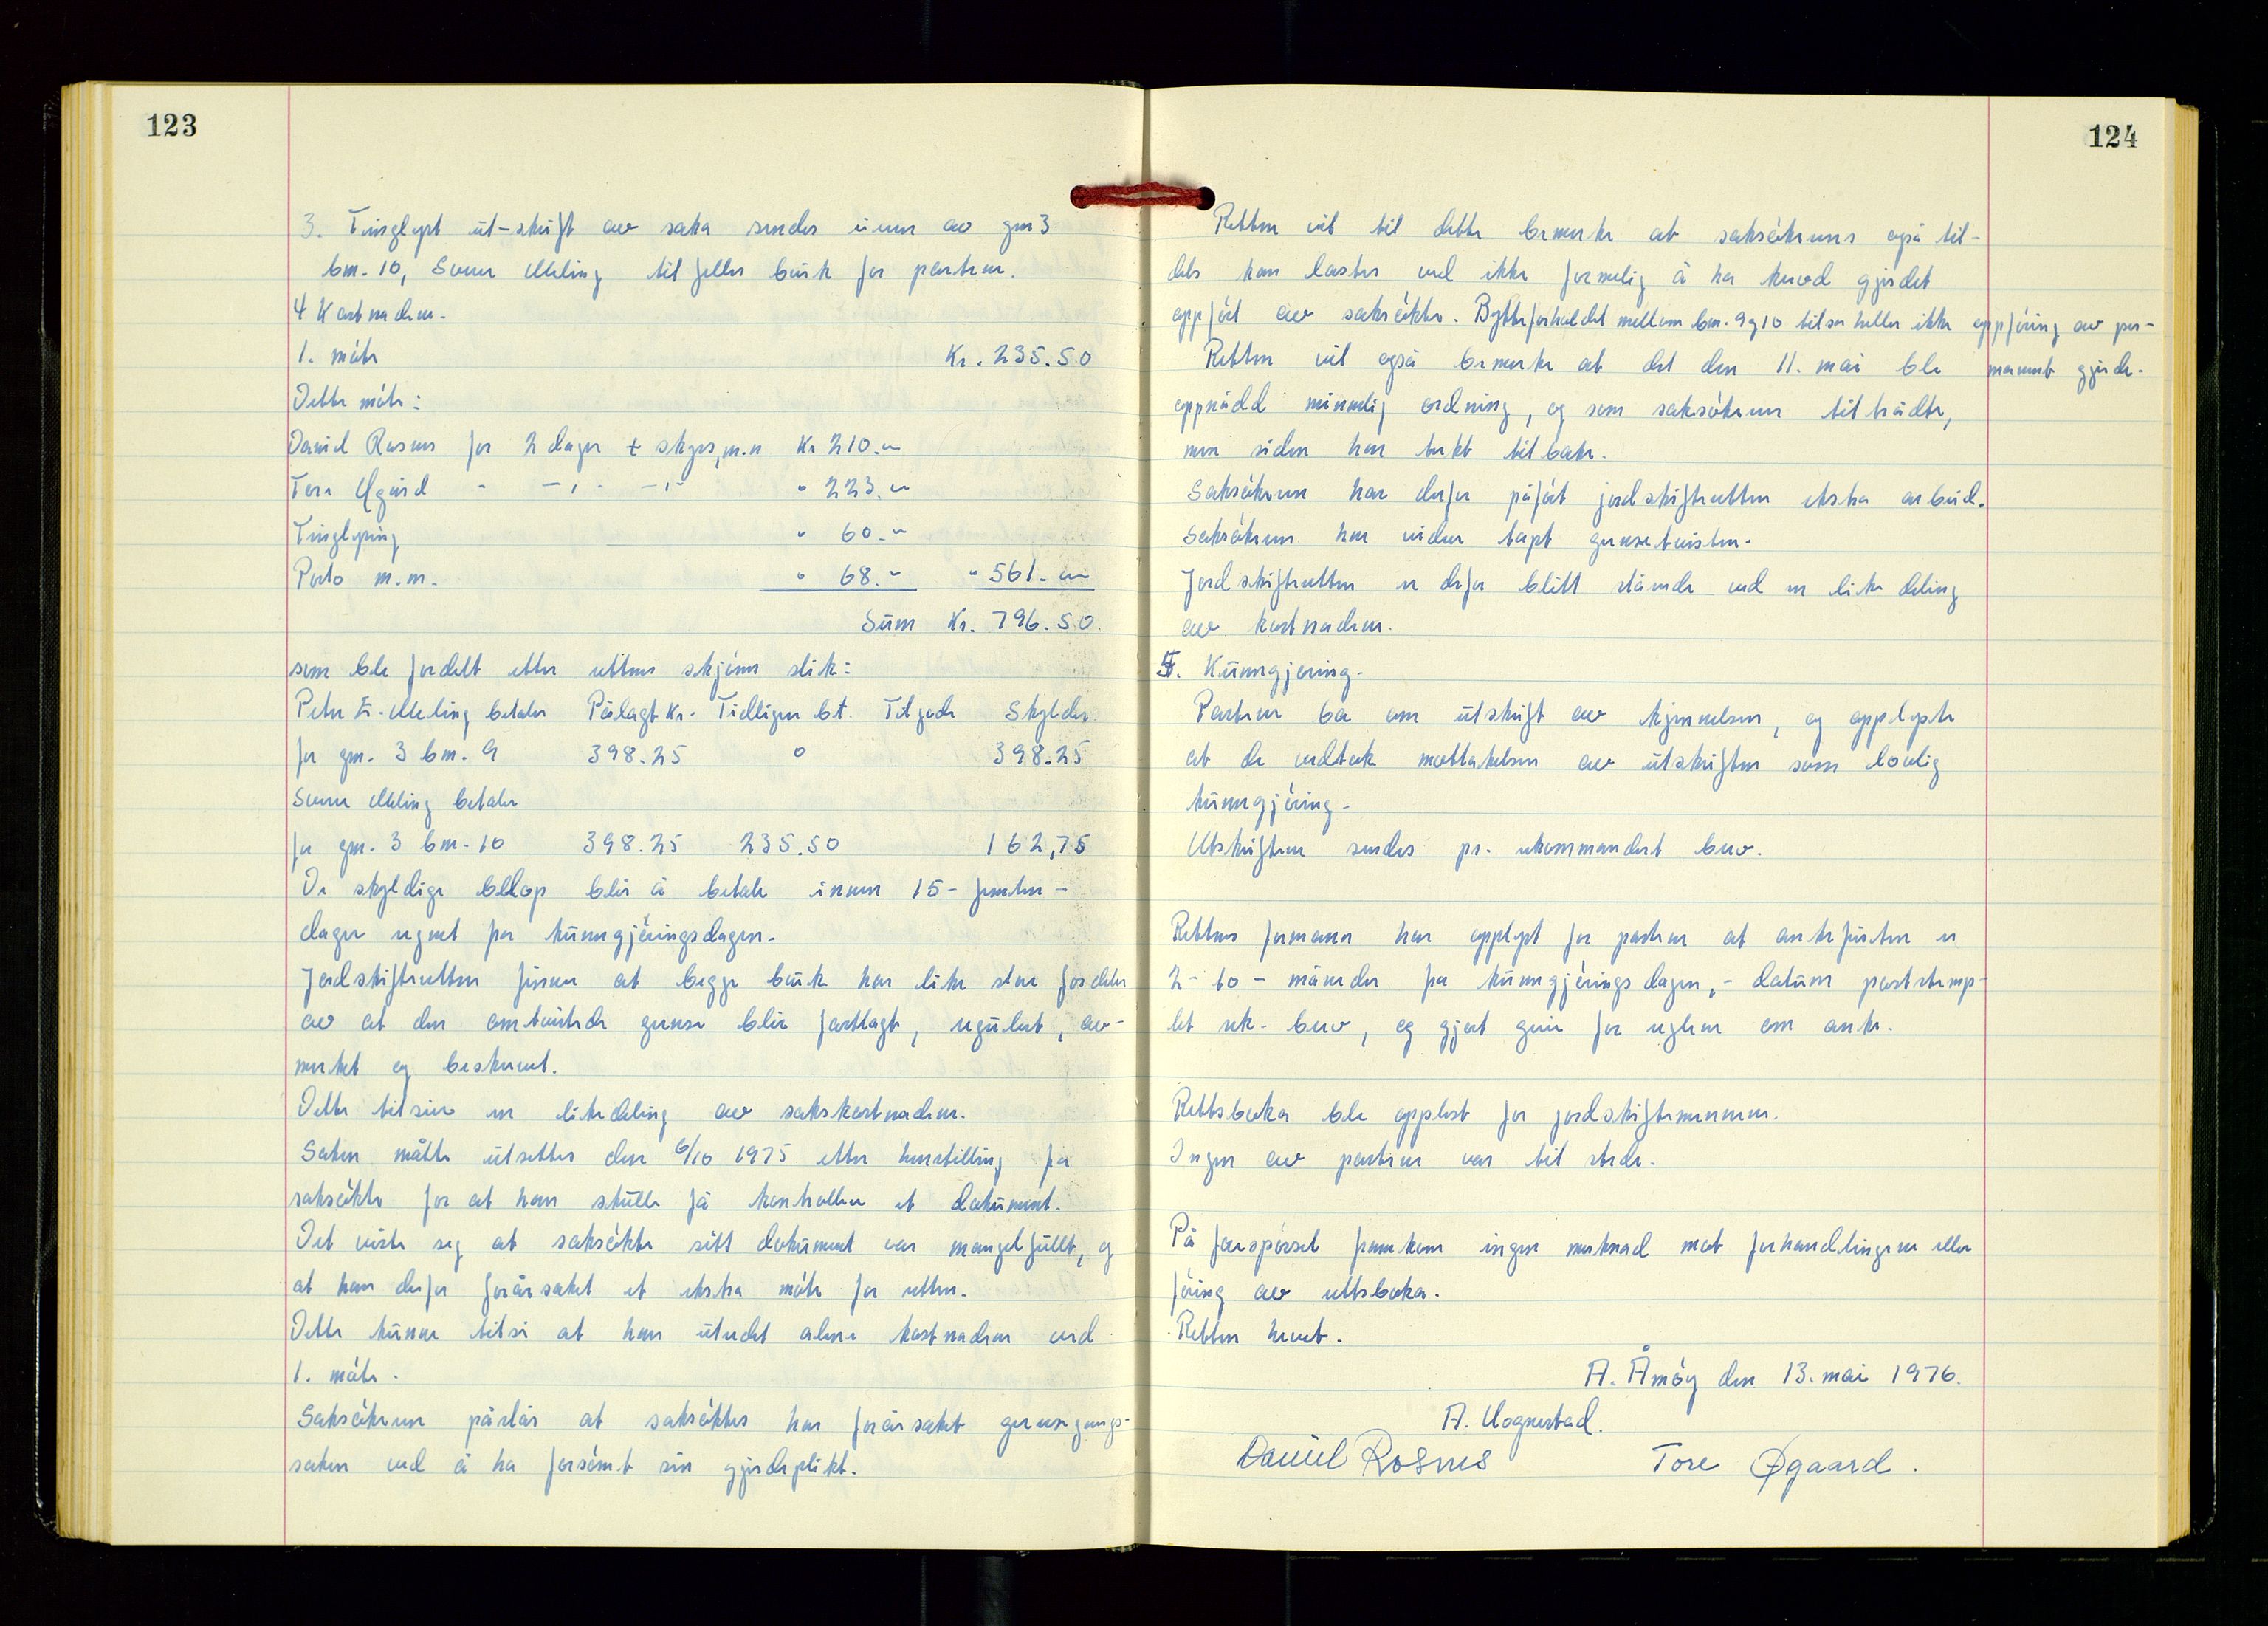 123
3. Tinglyst ut-skrift av saka sendes eieren av gnr 3
bnr. 10, Sverre Meling til felles bruk for partene.
4 Kostnadene.
1. møte Kr. 235.50
Dette møte:
Daniel Rosnes for 2 dager + skyss, m.m Kr 210.-
Tore Øgård - -"- -"- " 223.-
Tinglysing " 60.-
Porto m.m. " 68.- " 561.-
Sum Kr. 796.50.
som ble fordelt etter rettens skjønn slik:
Peter E. Meling betaler Pålagt kr. Tidligere bt. Tilgode Skylder
for gnr. 3 bnr. 9 398.25 0 398.25
Sverre Meling betaler
for gnr. 3 bnr. 10 398.25 235.50 162,75
De skyldige beløp blir å betale innen 15- femten-
dager regnet fra kunngjøringsdagen.
Jordskifteretten finner at begge bruk har like stor fordeler
av at den omtvistede grense blir fastlagt, regulert, av-
merket og beskrevet.
Dette tilsier en likedeling av sakskostnadene.
Saken måtte utsettes den 6/10 1975 etter henstilling fra
saksøkte for at han skulle få kontrollere et dokument.
Det viste seg at saksøkte sitt dokument var mangelfullt, og
at han derfor forårsaket et ekstra møte for retten.
Dette kunne tilsi at han utredet alene kostnadene ved
1. møte.
Saksøkeren påstår at saksøktes har forårsaket grensegangs-
saken ved å ha forsømt sin gjerdeplikt.
124
Retten vil til dette bemerke at saksøkerens også til-
dels kan lastes ved ikke formelig å ha krevd gjerdet
oppført av saksøkte. Bytteforholdet mellom bnr. 9 og 10 tilsier heller ikke oppføring av per-
Retten vil også bemerke at det den 11. mai ble manent gjerde.
oppnådd minnelig ordning, og som saksøkeren tiltrådte,
men siden har trekt tilbake.
Saksøkeren har derfor påført jordskifteretten ekstra arbeid.
Saksøkeren har videre tapt grensetvisten.
Jordskifteretten er derfor blitt stående ved en like deling
av kostnadene.
5. Kunngjøring.
Partene ba om utskrift av kjennelsen, og opplyste
at de vedtok mottakelsen av utskriften som lovlig
kunngjøring.
Utskriftene sendes pr. rekommandert brev.
Rettens formann har opplyst for partene at ankefristen er
2- to - måneder fra kunngjøringsdagen, - datum poststemp-
let rek. brev, og gjort greie for reglene om anke.
Rettsboka ble opplest for jordskiftemennene.
Ingen av partene var til stede.
På forespørsel framkom ingen merknad mot forhandlingene eller
føring av rettsboka.
Retten hevet.
A. Åmøy den 13. mai 1976.
A. Vognestad.
Daniel Rosnes Tore Øgaard.